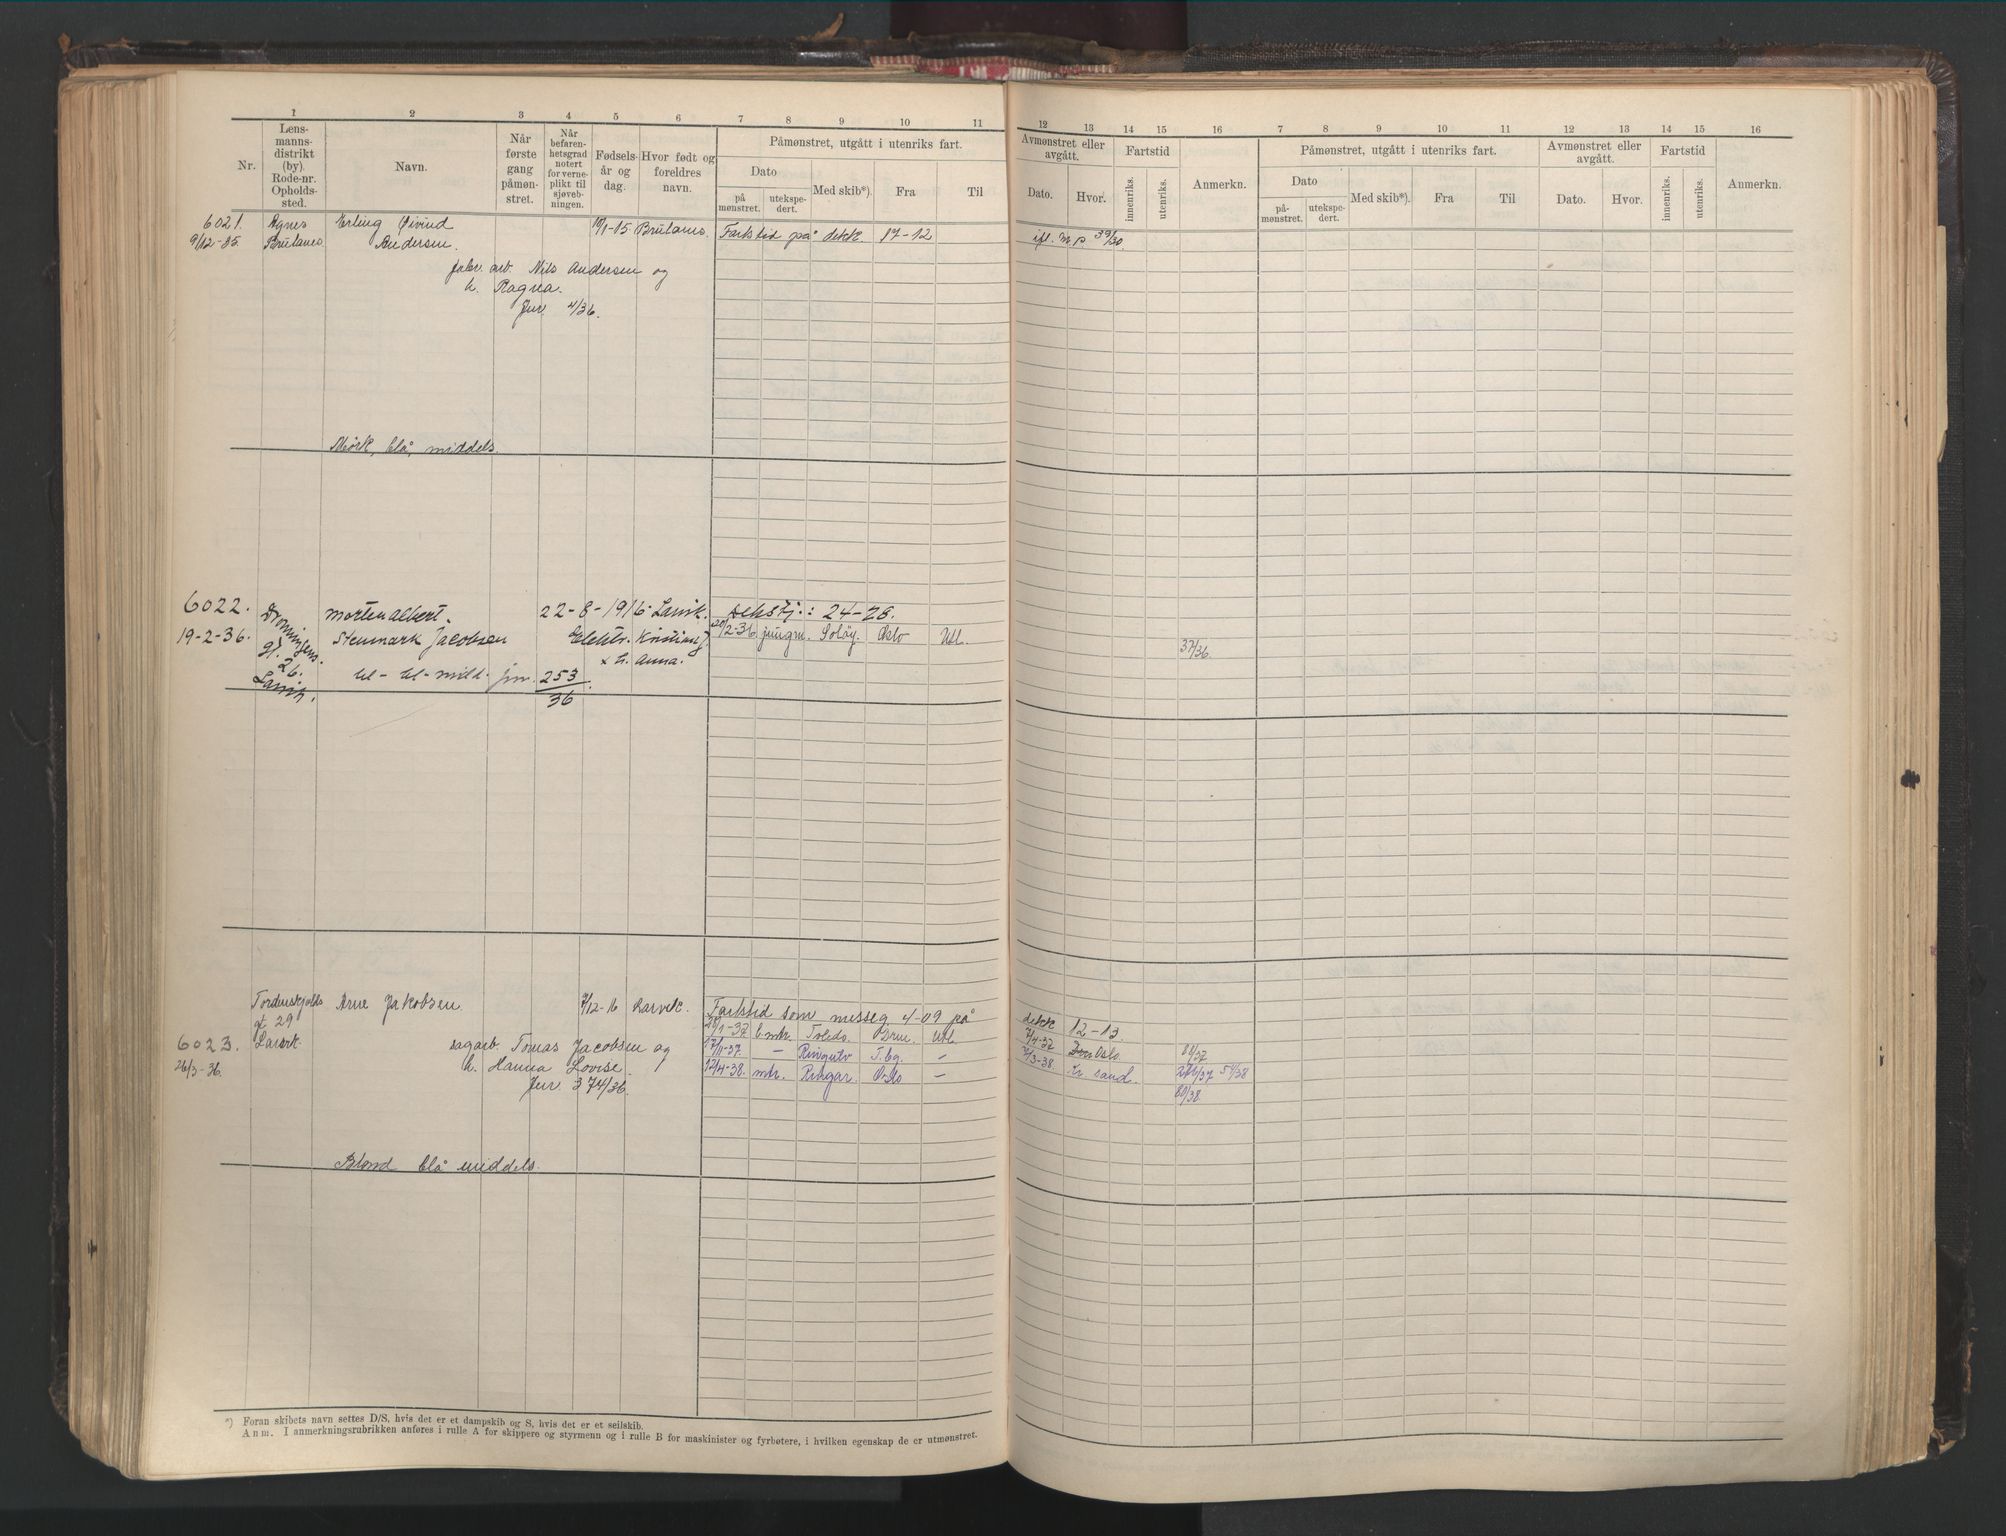 1 2 3 4 5 6 7 8 9 10 11
Nr.
Lens-
manns-
distrikt
(by).
Rode-nr.
Opholds-
sted.
Navn.
Når
første
gang
påmøn-
stret.
Når
befaren-
hetsgrad
notert
for verne-
plikt til
sjøveb-
ningen.
Fødsels-
år og
dag.
Hvor født og
foreldres
navn.
Påmønstret, utgått i utenriks fart.
Dato
på
mønstret.
utekspe-
dert.
Med skib*).
Fra
Til
12 13 14 15 16 7 8 9 10 11 12 13 14 15 16
Avmønstret eller
avgått.
Dato.
Hvor.
Fartstid
innenriks.
utenriks.
Anmerkn.
Påmønstret, utgått i utenriks fart.
Dato
på-
mønstret.
utekspe-
dert.
Med skib*).
Fra
Til
Avmønstret eller
avgått.
Dato.
Hvor.
Fartstid
innenriks.
utenriks.
Anmerkn.
6021. Agnes Erling Øivind 10/1-15 Brulanes. Fartstid på dekk 17-12 ifl. m.p. 39/30.
9/12-35 Brulanes Andersen.
fabr. arb. Nils Andersen og
h. Ragna.
Jur. 4/36.
Mørk, blå, middels.
6022. Dronningens Morten Albert. 22-8-1916 Larvik. Dekstj.: 24-28.
19-2-36. gt. 26. Stenmark Jacobsen Elektr. Kristian J. 20/2-36. jungm. Soløy. Oslo Utl. 37/36.
Larvik. bl- bl- midd- jnr. 253/36 x h. Anna.
Tordenskjolds Arne Jakobsen 3/12-16 Larvik. Fartstid som messeg 4-09 på dekk 12-13.
gt 29
6023. Larvik sagarb. Tomas Jacobsen og
26/3-36. h. Hanna Lovise.
Jur. 374/36.
20/1-37 b mtr. Toledo. Drm. Utl. 7/4-37 Oslo 80/37
17/11-37. — Ringulv T.bg. — 7/3-38. Kr. sand. 281/37 51/38
12/4-38. mtr. Ringar. Oslo — 80/38
Blond blå middels.
*) Foran skibets navn settes D/S, hvis det er et dampskib og S, hvis det er et seilskib.
Anm. I anmerkningsrubrikken anføres i rulle A for skippere og styrmenn og i rulle B for maskinister og fyrbøtere, i hvilken egenskap de er utmønstret.